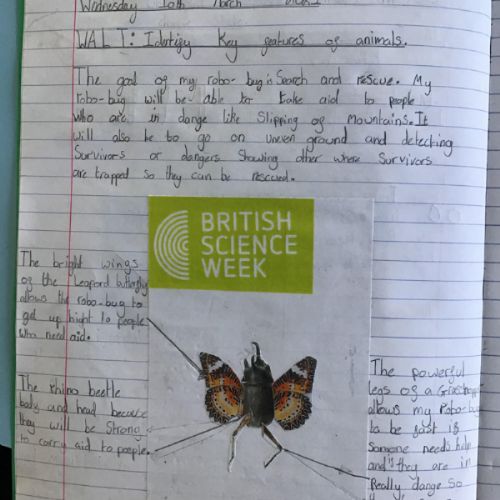 Wednesday 10th March
WALT: Identify key features of animals.
The goal of my robo-bug is Search and rescue. My
robo-bug will be-able to take aid to people
who are in dange like Slipping of Mountains. It
will also be to go on uneven ground and detecting
Survivors or dangers Showing other where Survivors
are trapped so they can be rescued.
BRITISH
SCIENCE
WEEK
The bright wings
of the leapord butterfly
allows the robo-bug to
get up hight to people
who need aid.
The rhino beetle
body and head because
they will be Strong
to carry aid to poeple.
The powerful
legs of a Grasshopper
allows my Robo-bug
to be fast if
Somone needs help
and they are in
Really dange So